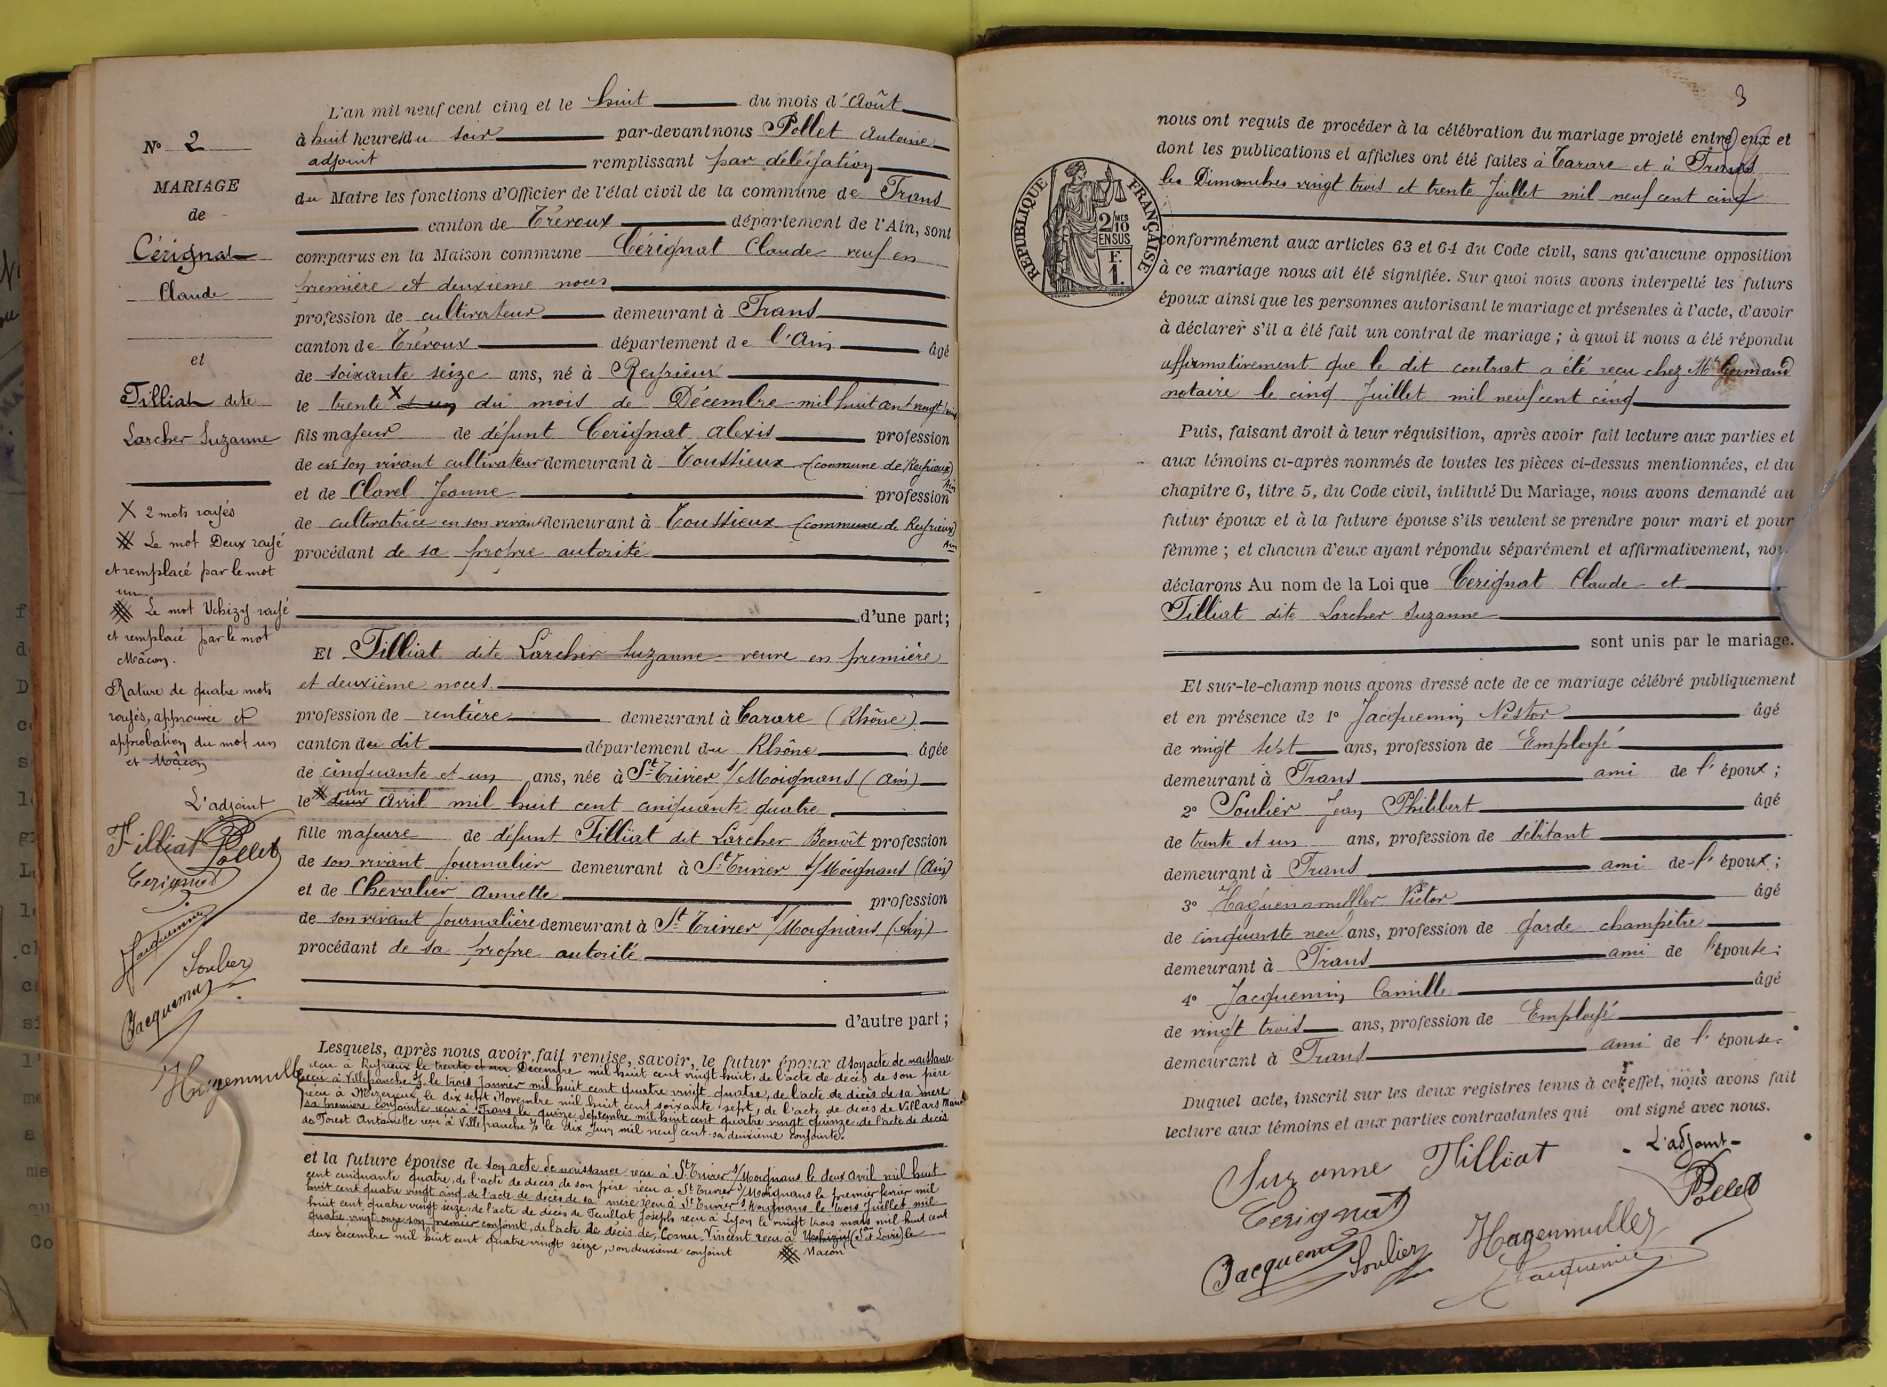 L'an mil neuf cent cinq et le huit du mois d'Août
à huit heures du soir par-devant nous Pollet Antoine
adjoint remplissant par délégation
du Maire les fonctions d'Officier de l'état civil de la commune de Frans
canton de Trévoux département de l'Ain, sont
comparus en la Maison commune Cérignat Claude veuf en
première et deuxième noces
profession de cultivateur demeurant à Frans
canton de Trévoux département de l'Ain âgé
de soixante seize ans, né à Reyrieux
le trente X et un du mois de Décembre mil huit cent vingt huit
fils majeur de défunt Cerignat Alexis profession
de en son vivant cultivateur demeurant à Toussieux (commune de Reyrieux)
Ain
et de Clavel Jeanne profession
de cultivatrice en son vivant demeurant à Toussieux (commune de Reyrieux)
Ain
procédant de sa propre autorité
d'une part;
Et Tilliat dite Larcher Suzanne veuve en première
et deuxième noces
profession de rentière demeurant à Tarare (Rhône)
canton du dit département du Rhône âgée
de cinquante et un ans, née à St Trivier s/Moignans (Ain)
un
le deux Avril mil huit cent cinquante quatre
fille majeure de défunt Tilliat dit Larcher Benoît profession
de son vivant journalier demeurant à St Trivier s/Moignans (Ain)
et de Chevalier Annette profession
de son vivant journalière demeurant à St Trivier s/Moignans (Ain)
procédant de sa propre autorité
d'autre part;
Lesquels, après nous avoir fait remise, savoir, le futur époux d son acte de naissance
reçu à Reyrieux le trente et un Décembre mil huit cent vingt huit, de l'acte de décès de son père
reçu à Villefranche le trois janvier mil huit cent quatre vingt quatre, de l'acte de décès de sa mère
reçu à Mizerieux le dix sept Novembre mil huit cent soixante sept, de l'acte de décès de Villars
sa première conjointe reçu à Frans le quinze Septembre mil huit cent quatre vingt quinze de l'acte de décès
de Forest Antoinette reçu à Villefranche le dix Juin mil neuf cent sa deuxième conjointe.
et la future épouse de son acte de naissance reçu à St Trivier s/Moignans le deux avril mil huit
cent cinquante quatre, de l'acte de décès de son père reçu à St Trivier s/Moignans le premier février mil
huit cent quatre vingt cinq de l'acte de décès de sa mère reçu à St Trivier s/Moignans le trois Juillet mil
huit cent quatre vingt seize, de l'acte de décès de Joseph reçu à Lyon le vingt trois mars mil huit cent
quatre vingt onze son premier conjoint, de l'acte de décès de Vincent reçu à Uchizy (S et Loire) le
deux décembre mil huit cent quatre vingt seize, son deuxième conjoint Mâcon
N° 2
MARIAGE
de
Cérignat
Claude
et
Tilliat dite
Larcher Suzanne
X 2 mots rayés
Le mot Deux rayé
et remplacé par le mot
un
Le mot Uchizy rayé
et remplacé par le mot
Mâcon.
Rature de quatre mots
rayés, approuvée et
approbation du mot un
et Mâcon
L'adjoint
Tilliat Pollet
Cerignat
Jacquemin
Soulier
Jacquemin
Hagenmuller
3
nous ont requis de procéder à la célébration du mariage projeté entre eux et
dont les publications et affiches ont été faites à Tarare et à Frans
les Dimanches vingt trois et trente Juillet mil neuf cent cinq
RÉPUBLIQUE FRANÇAISE
2/10
EN SUS
F.
1.
conformément aux articles 63 et 64 du Code civil, sans qu'aucune opposition
à ce mariage nous ait été signifiée. Sur quoi nous avons interpellé les futurs
époux ainsi que les personnes autorisant le mariage et présentes à l'acte, d'avoir
à déclarer s'il a été fait un contrat de mariage; à quoi il nous a été répondu
affirmativement que le dit contrat a été reçu chez Mr Germand
notaire le cinq Juillet mil neuf cent cinq
Puis, faisant droit à leur réquisition, après avoir fait lecture aux parties et
aux témoins ci-après nommés de toutes les pièces ci-dessus mentionnées, et du
chapitre 6, titre 5, du Code civil, intitulé Du Mariage, nous avons demandé au
futur époux et à la future épouse s'ils veulent se prendre pour mari et pour
femme; et chacun d'eux ayant répondu séparément et affirmativement, nous
déclarons Au nom de la Loi que Cerignat Claude et
Tilliat dite Larcher Suzanne
sont unis par le mariage.
Et sur-le-champ nous avons dressé acte de ce mariage célébré publiquement
et en présence de 1° Jacquemin Nestor âgé
de vingt sept ans, profession de Employé
demeurant à Frans ami de l'époux;
2° Soulier Jean Philibert âgé
de trente et un ans, profession de débitant
demeurant à Frans ami de l'époux;
3° Haguenmuller Victor âgé
de cinquante neuf ans, profession de garde champêtre
demeurant à Frans ami de l'épouse;
4° Jacquemin Camille âgé
de vingt trois ans, profession de Employé
demeurant à Frans ami de l'épouse.
Duquel acte, inscrit sur les deux registres tenus à cet effet, nous avons fait
lecture aux témoins et aux parties contractantes qui ont signé avec nous.
Suzanne Tilliat
L'adjoint
Pollet
Cerignat
Hagenmuller
Jacquemin Soulier
Jacquemin